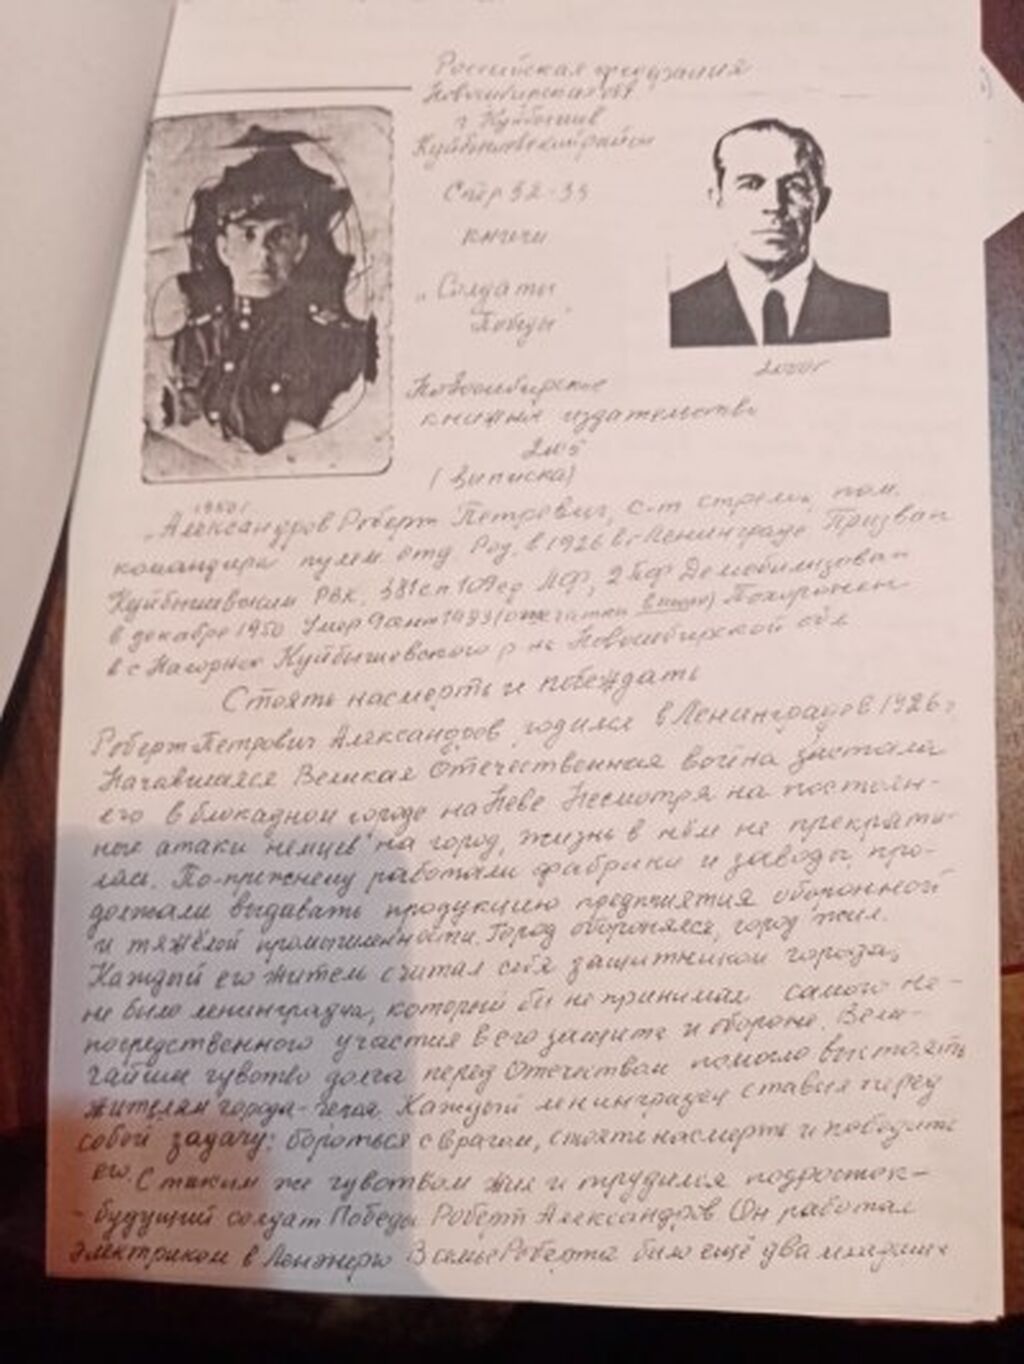 Российская федерация
Новосибирская обл
г. Куйбышев
Куйбышевский район
Стр 32-33
книги
"Солдаты
Победы"
Новосибирское
книжное издательство
(Выписка)
1950 г
"Александров Роберт Петрович, с-т стрелк, пом.
командира пулем. отд. Род. в 1926 в г Ленинграде Призван
Куйбышевским РВК. 381 сп 109 сд ЛФ, 2 БФ Демобилизован
в декабре 1950. Умер 9 1983 (опечатка в книге) Похоронен
в с Нагорное Куйбышевского р на Новосибирской обл
Стоять насмерть и побеждать
Роберт Петрович Александров родился в Ленинграде в 1926 г
Начавшаяся Великая Отечественная война застала
его в блокадном городе на Неве Несмотря на постоян-
ные атаки немцев на город, жизнь в нём не прекрати-
лась. По-прежнему работали фабрики и заводы, про-
должали выдавать продукцию предприятия оборонной
и тяжёлой промышленности. Город оборонялся, город жил.
Каждый его житель считал себя защитником города,
не было ленинградца, который бы не принимал самого не-
посредственного участия в его защите и обороне. Вели-
чайшее чувство долга перед Отечеством помогло выстоять
жителям города-героя. Каждый ленинградец ставил перед
собой задачу: бороться с врагом, стоять насмерть и победить
его. С таким же чувством жил и трудился подросток-
- будущий солдат Победы Роберт Александров Он работал
электриком в Ленэнерго В семье Роберта было ещё два младших